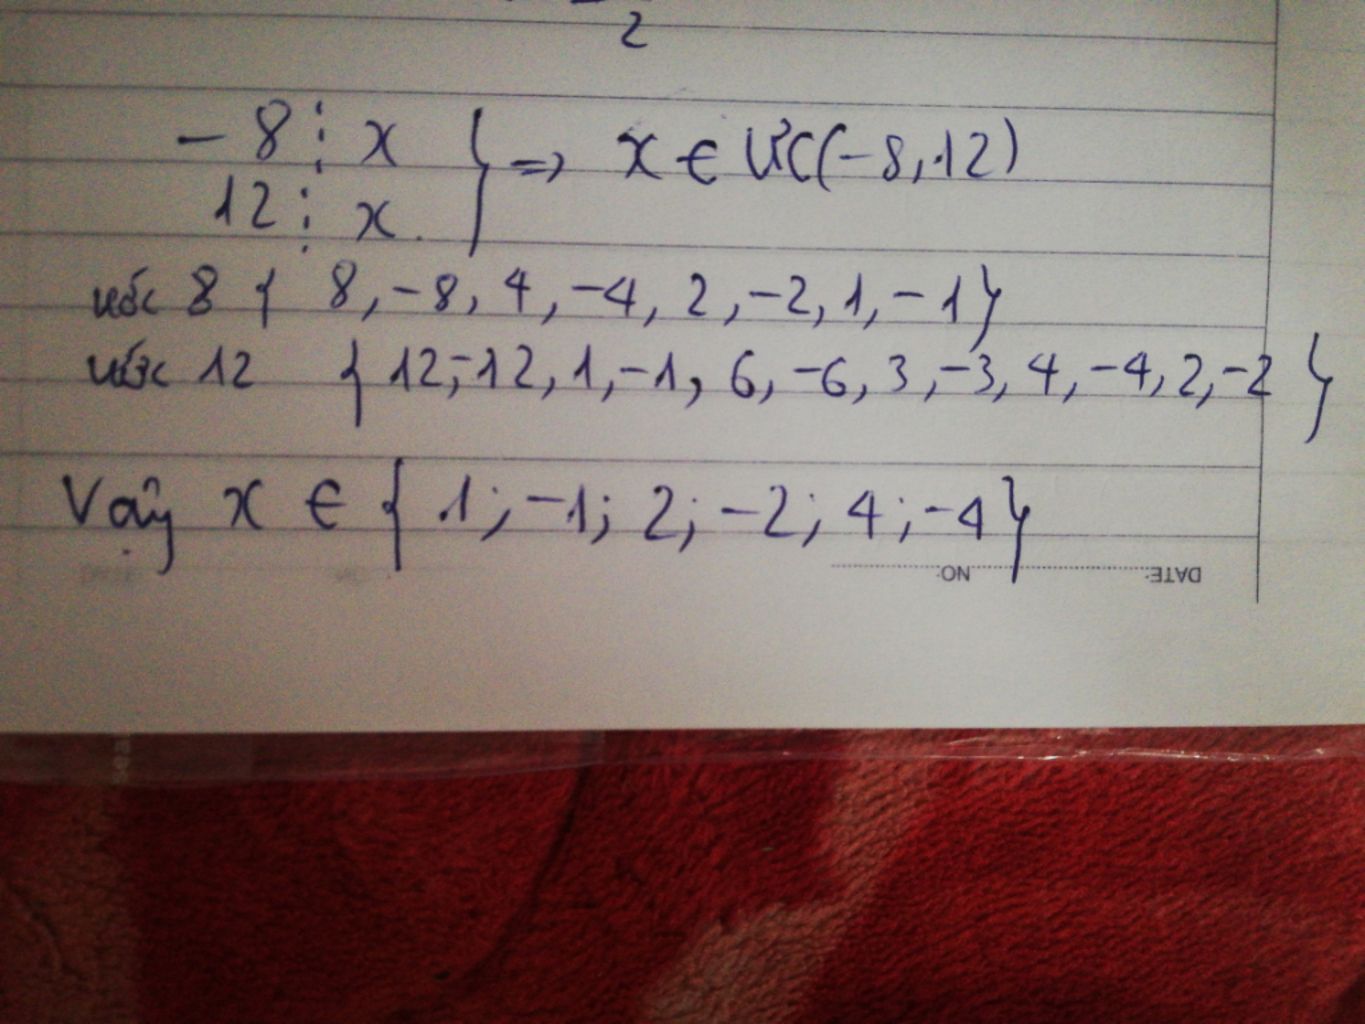 2
- 8 ⋮ x } => x ∈ ƯC(-8,12)
12 ⋮ x
ước 8 { 8, -8, 4, -4, 2, -2, 1, -1}
ước 12 { 12, -12, 1, -1, 6, -6, 3, -3, 4, -4, 2, -2 }
Vậy x ∈ { 1; -1; 2; -2; 4; -4}
NO: DATE: